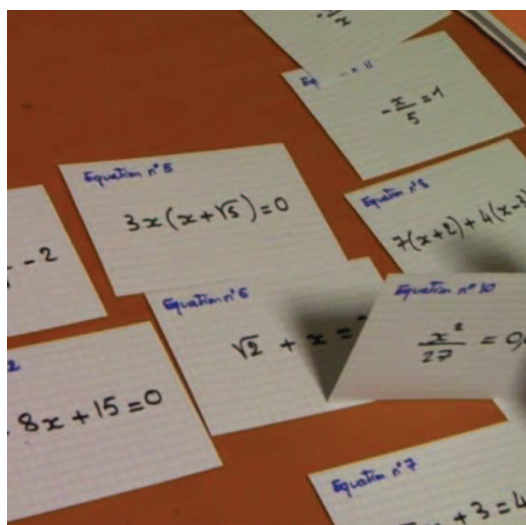 - x
n° 11
- x/5 = 1
Equation n° 5
3x(x+√5)=0
Equation n° 8
7(x+2)+4(x-
- 2
Equation n° 6
√2 + x =
Equation n° 10
x²/27 = 0,
2
8x+15=0
Equation n° 7
x + 3 = 4